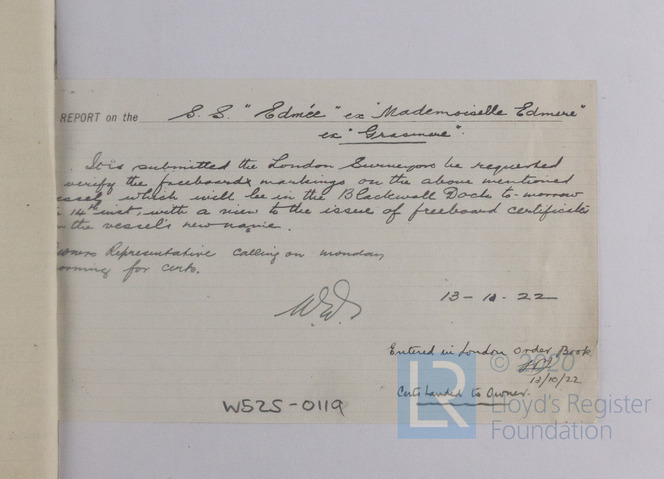 REPORT on the S.S. "Edmée" ex "Mademoiselle Edmere"
ex "Grasmere".
It is submitted the London Surveyors be requested
verify the freeboard markings on the above mentioned
essel, which will be in the Blackwall Dock to-morrow
14th inst, with a view to the issue of freeboard certificate
n the vessel's new name.
wners Representative calling on monday
orning for certs.
13-10-22
Entered in London Order Book
13/10/22
Certs handed to Owner.
W525-0119
© 2020
LR
Lloyd's Register
Foundation